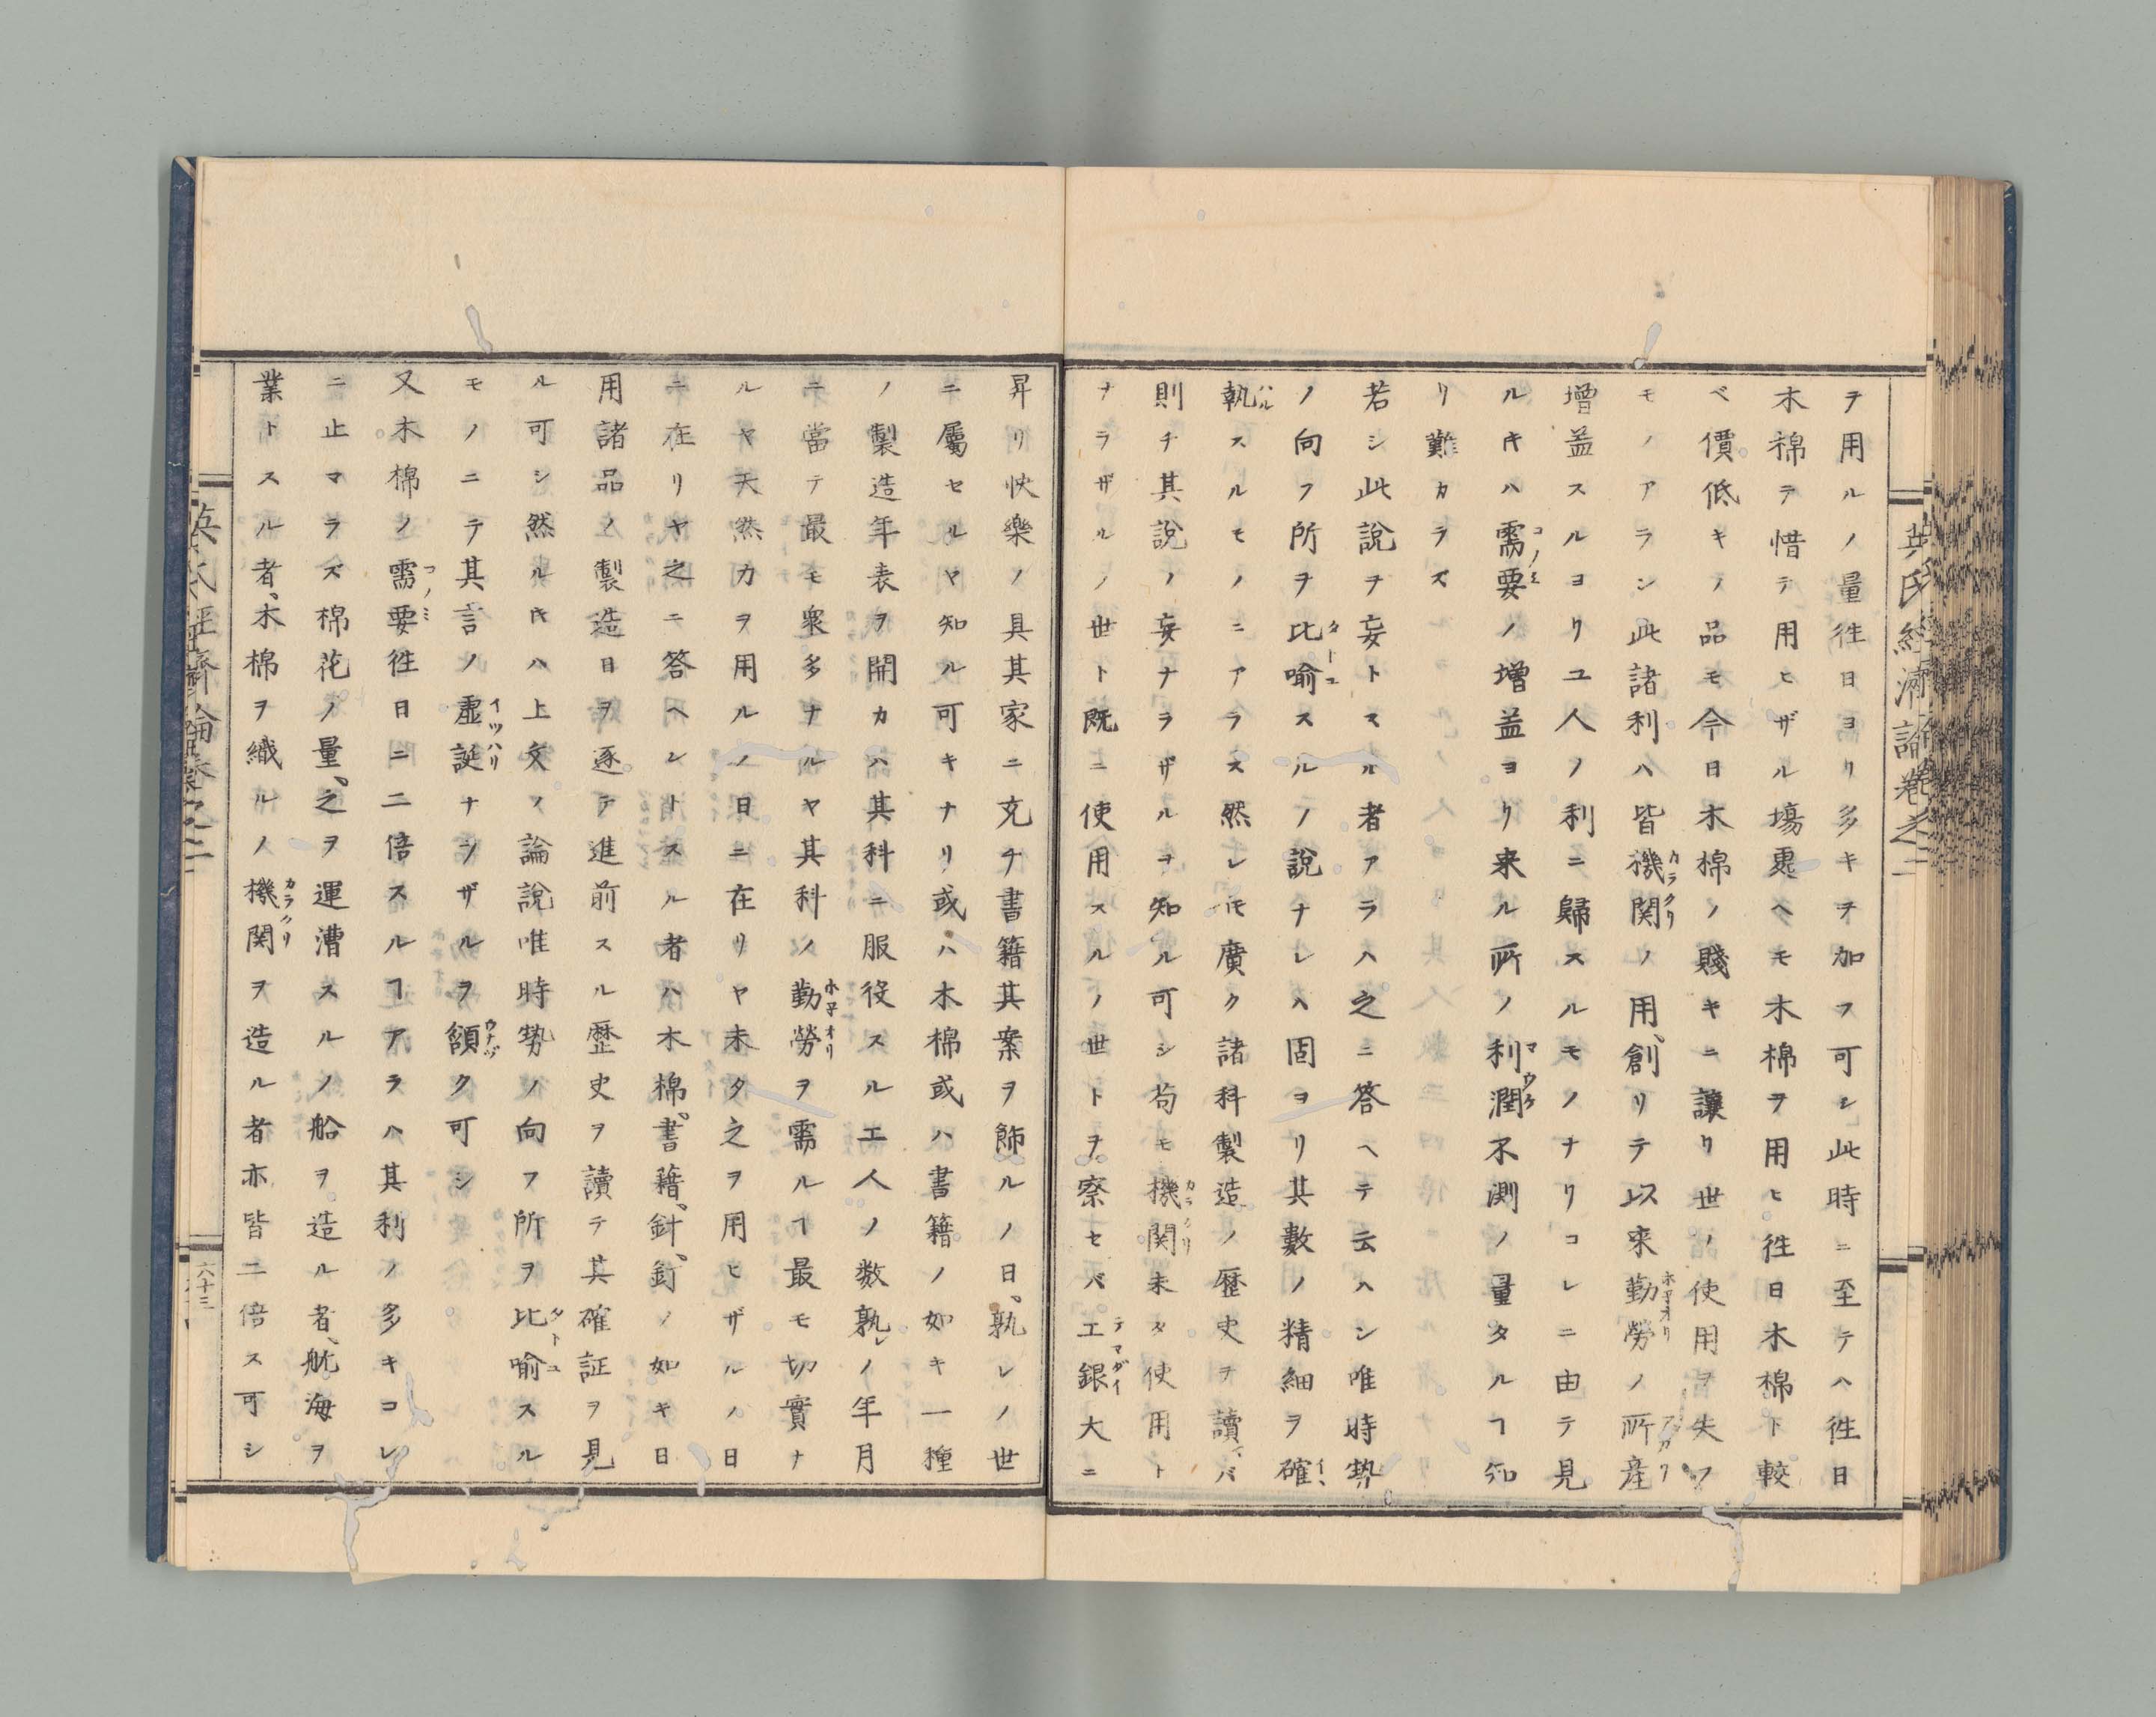 英氏経済論巻之二
ヲ用ルノ量徃日ヨリ多キヲ加フ可シ此時ニ至テハ徃日
木棉ヲ惜テ用ヒザル塲處ヘモ木棉ヲ用ヒ徃日木棉ト較
ベ價低キノ品モ今日木棉ノ賤キニ讓リ世ノ使用ヲ失フ
モノアラン此諸利ハ皆機関ノ用、創リテ以来勤勞ノ所産
増益スルヨリユ人ノ利ニ歸スルモノナリコレニ由テ見
ルキハ需要ノ増益ヨリ来ル所ノ利潤不測ノ量タルヿ知
リ難カラズ
若シ此説ヲ妄トスル者アラハ之ニ答ヘテ云ハン唯時勢
ノ向フ所ヲ比喻スルノ説ナレハ固ヨリ其數ノ精細ヲ確
執スルモノニアラス然レ𪜈廣ク諸科製造ノ歴史ヲ讀バ
則チ其説ノ妄ナラザルヲ知ル可シ苟モ機関未タ使用ト
ナラザルノ世ト既ニ使用スルノ世トヲ察セバ工銀大ニ
昇リ快樂ノ具其家ニ充チ書籍其案ヲ飾ルノ日、孰レノ世
ニ屬セルヤ知ル可キナリ或ハ木棉或ハ書籍ノ如キ一種
ノ製造年表ヲ開カハ其科ニ服役スルエ人ノ数孰レノ年月
ニ當テ最モ衆多ナルヤ其科ノ勤勞ヲ需ルヿ最モ切實ナ
ルヤ天然カヲ用ルノ日ニ在リヤ未タ之ヲ用ヒザルノ日
ニ在リヤ之ニ答ヘントスル者ハ木棉。書籍、針、釘ノ如キ日
用諸品ノ製造日ヲ逐テ進前スル歴史ヲ讀テ其確証ヲ見
ル可シ然ルキハ上文ノ論説唯時勢ノ向フ所ヲ比喻スル
モノニテ其言ノ虚誕ナシザルヲ頷ク可シ
又木棉ノ需要徃日ニ二倍スルヿアラハ其利ノ多キコレ
ニ止マラズ棉花ノ量、之ヲ運漕スルノ船ヲ造ル者、航海ヲ
業トスル者、木棉ヲ織ルノ機関ヲ造ル者亦皆二倍ス可シ
英氏經濟論巻之二
六十三